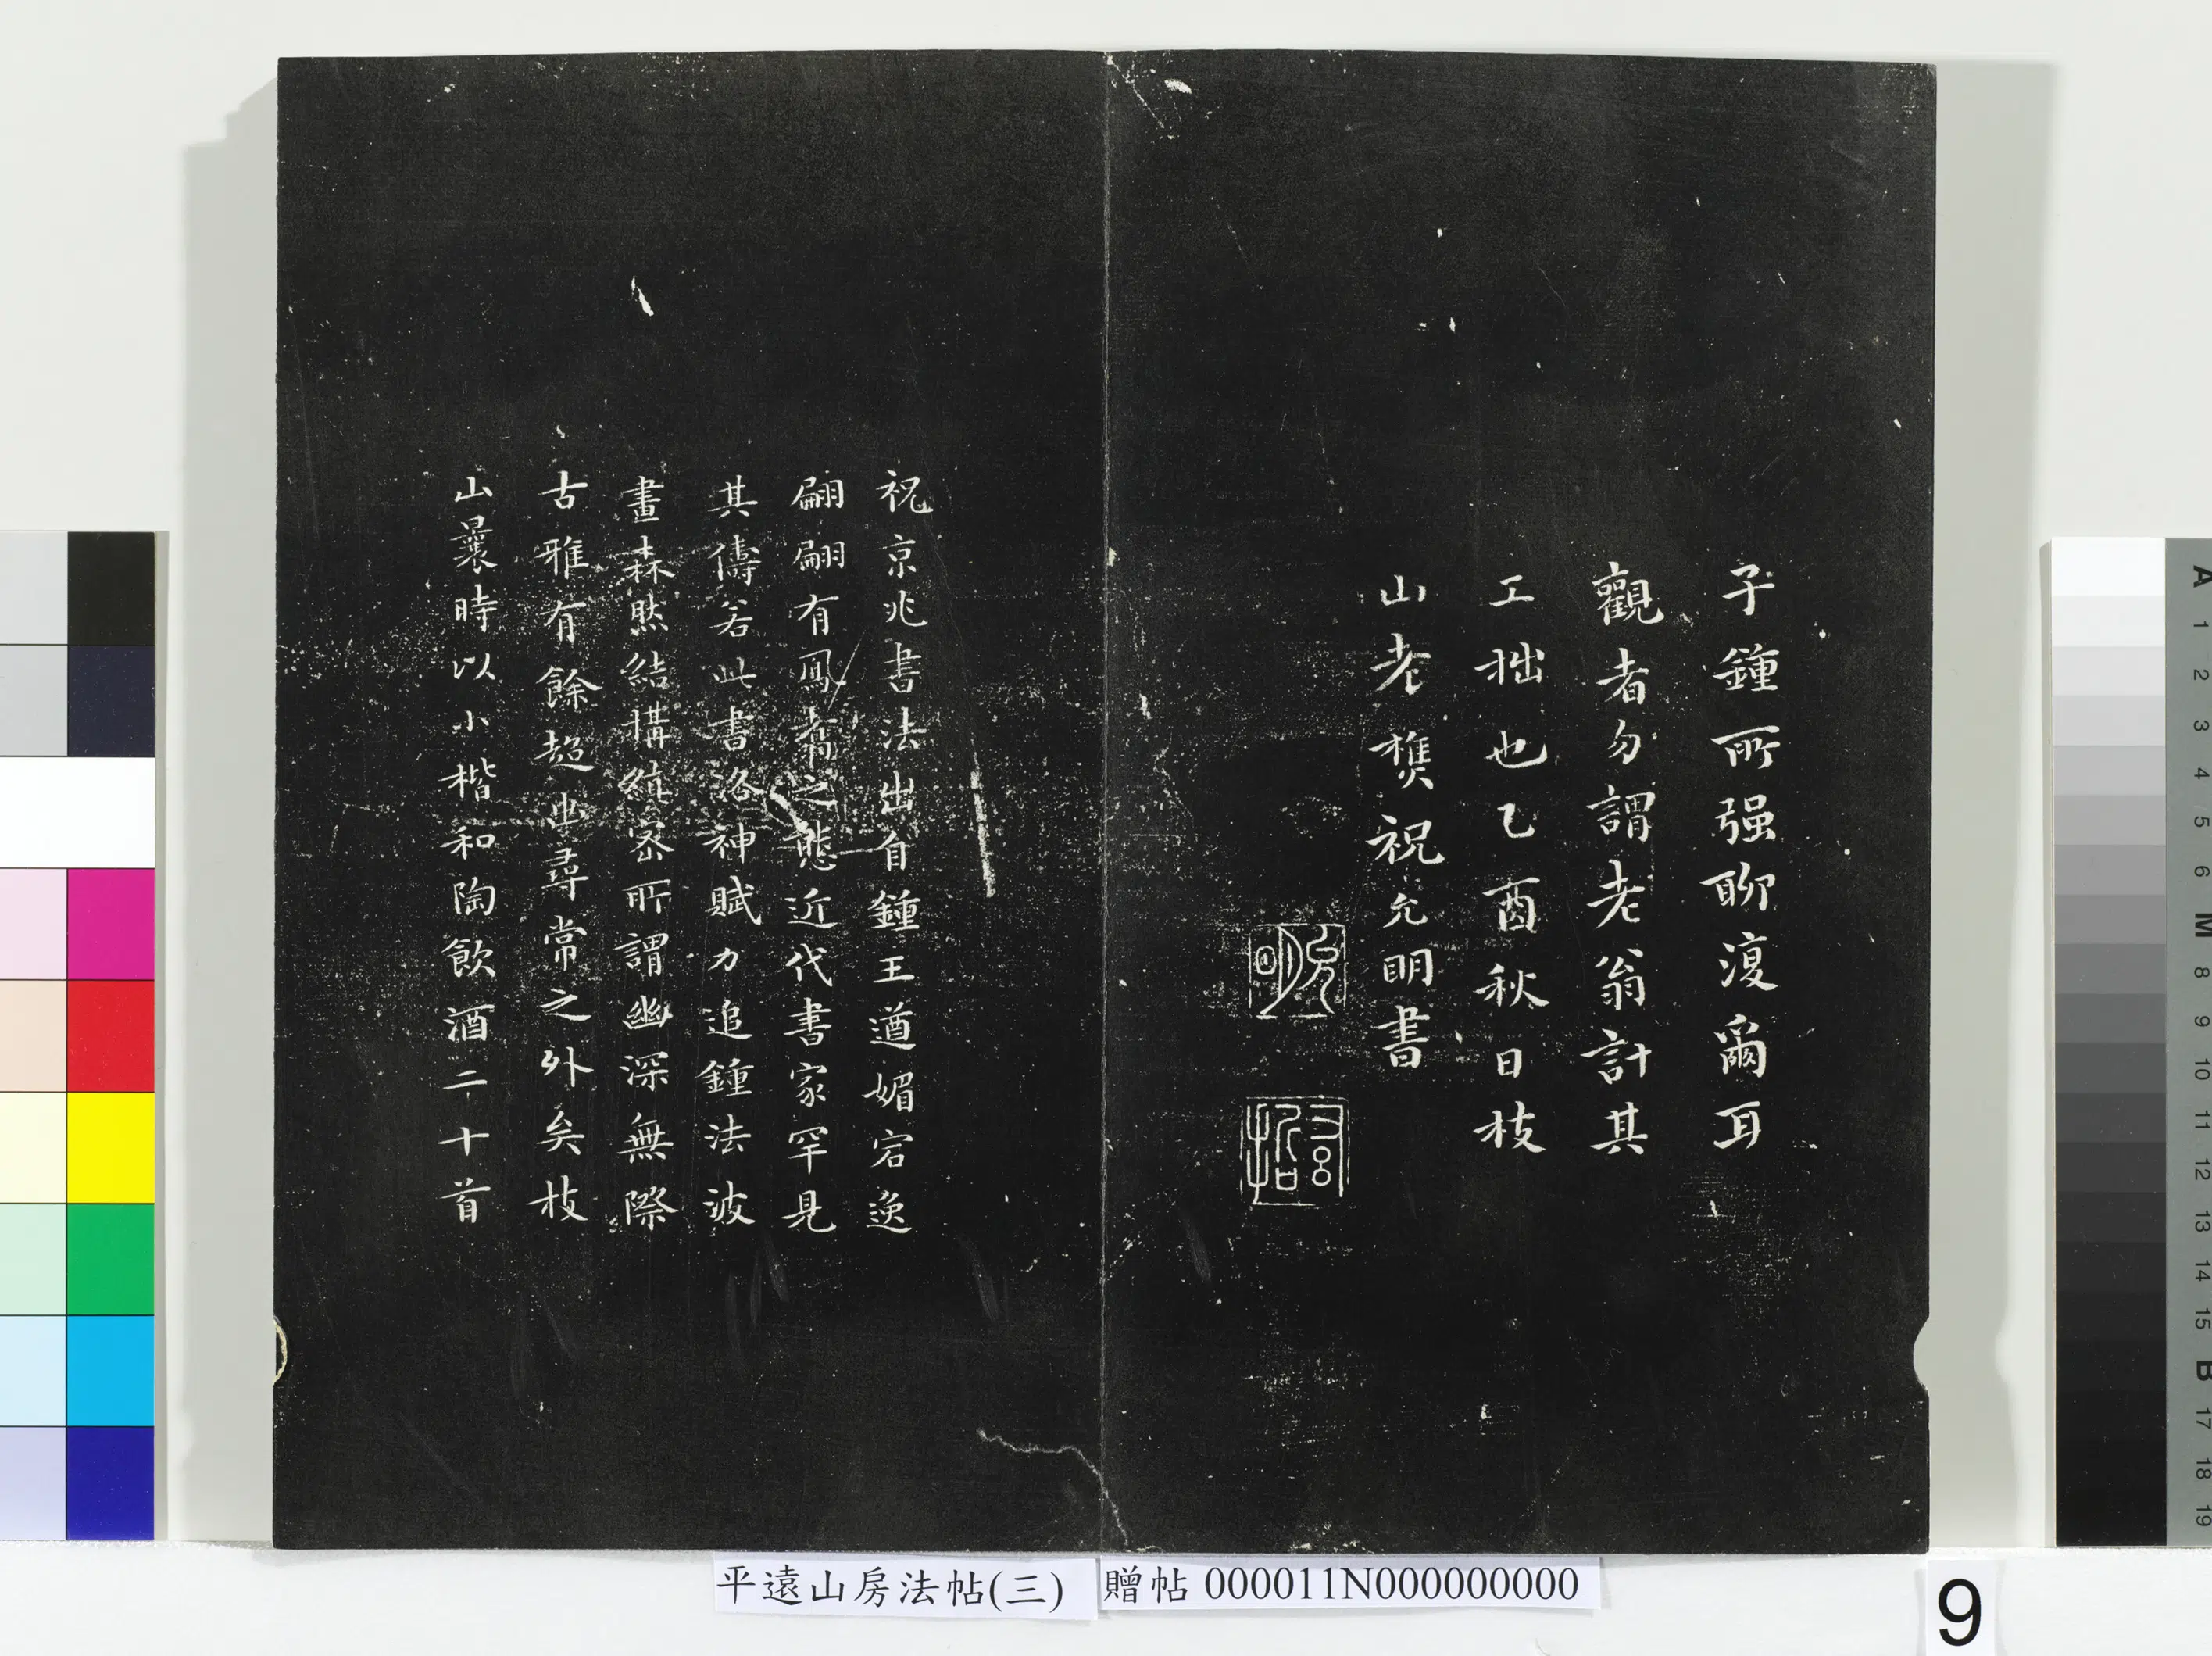 子鍾所强聊復爾耳
觀者勿謂老翁計其
工拙也乙酉秋日枝
山老樵祝允明書
允明
祝京兆書法出自鍾王遒媚宕逸
翩翩有鳳翥之態近代書家罕見
其儔若此書洛神賦力追鍾法波
畫森然結搆縝密所謂幽深無際
古雅有餘超出尋常之外矣枝
山曩時以小楷和陶飲酒二十首
平遠山房法帖(三)
贈帖 000011N000000000
9
A
1
2
3
4
5
6
M
8
9
10
11
12
13
14
15
B
17
18
19